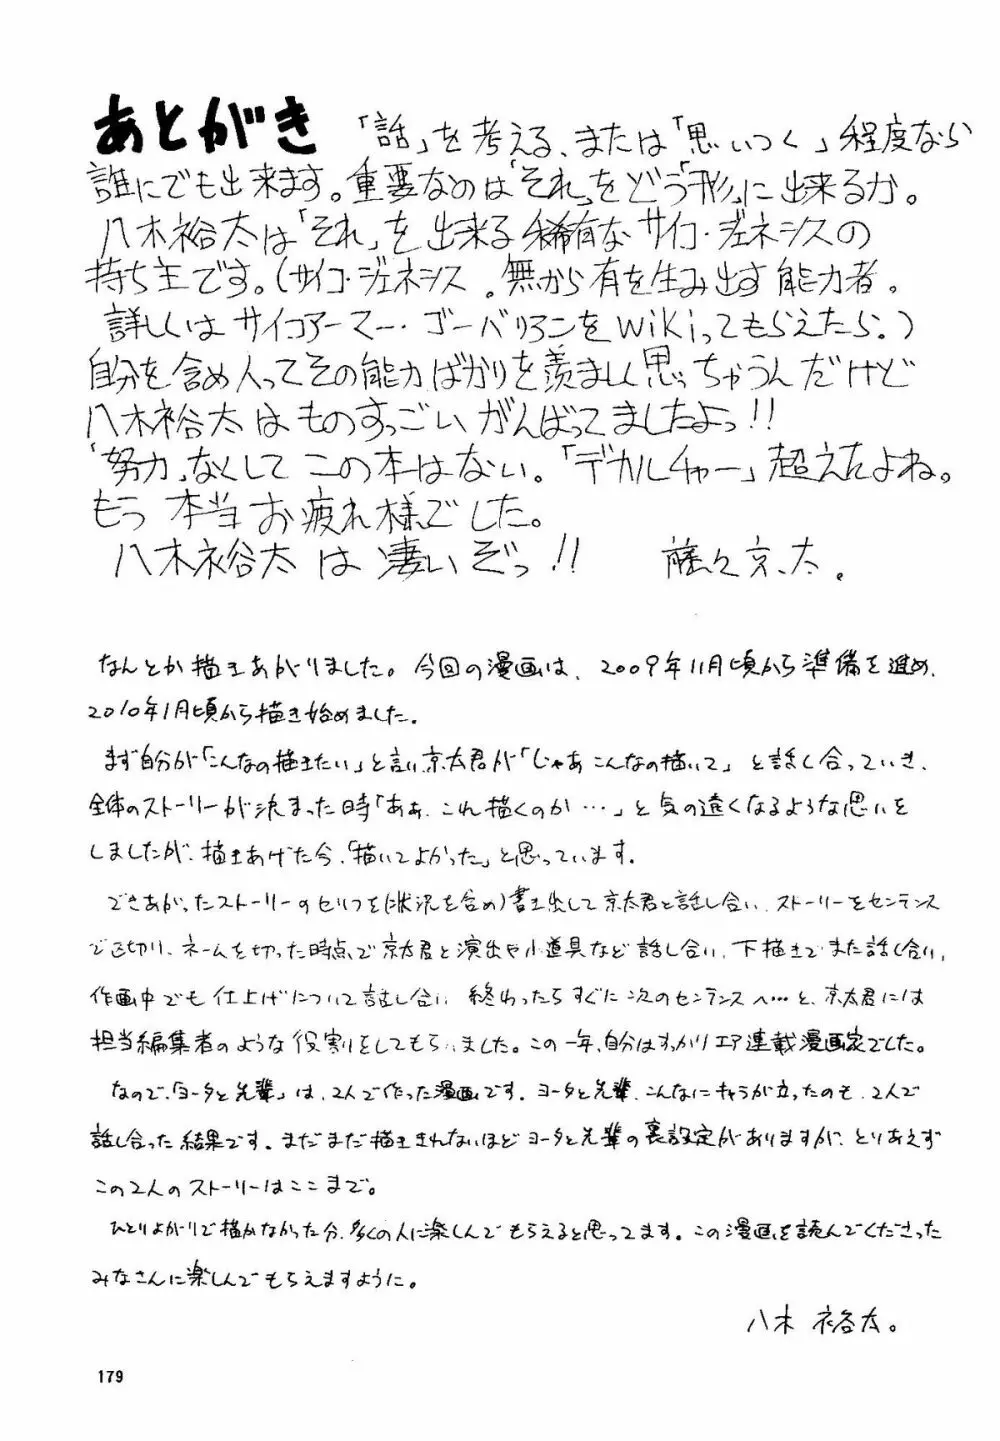 あとがき 「話」を考える、または「思いつく」程度なら
誰にでも出来ます。重要なのは「それ」をどう「形」に出来るか。
八木裕太は「それ」を出来る稀有なサイコ・ジェネシスの
持ち主です。(サイコ・ジェネシス。無から有を生み出す能力者。
詳しくはサイコアーマー・ゴーバリアンをwikiってもらえたら。)
自分を含め人ってその能力ばかりを羨ましく思っちゃうんだけど
八木裕太はものすっごいがんばってましたよっ!!
「努力」なくしてこの本はない。「デカルチャー」超えたよね。
もう本当お疲れ様でした。
八木裕太は凄いぞっ!! 藤久京太.
なんとか描きあがりました。今回の漫画は、2009年11月頃から準備を進め、
2010年1月頃から描き始めました。
まず自分が「こんなの描きたい」と言い京太君が「じゃあこんなの描いて」と話し合っていき、
全体のストーリーが決まった時「あぁ、これ描くのか…」と気の遠くなるような思いを
しましたが、描きあげた今、「描いてよかった」と思っています。
できあがったストーリーのセリフを(状況を含め)書き出して京太君と話し合い、ストーリーをセンテンス
で区切り、ネームを切った時点で京太君と演出や小道具など話し合い、下描きでまた話し合い、
作画中でも仕上げについて話し合い 終わったらすぐに次のセンテンスへ…と、京太君には
担当編集者のような役割をしてもらいました。この一年、自分はすっかりエア連載漫画家でした。
なので、「ヨータと先輩」は、2人で作った漫画です。ヨータと先輩、こんなにキャラが立ったのも、2人で
話し合った結果です。まだまだ描ききれないほどヨータと先輩の裏設定がありますが、とりあえず
この2人のストーリーはここまで。
ひとりよがりで描かなかった分、多くの人に楽しんでもらえると思ってます。この漫画を読んでくださった
みなさんに楽しんでもらえますように。
八木 裕太。
179